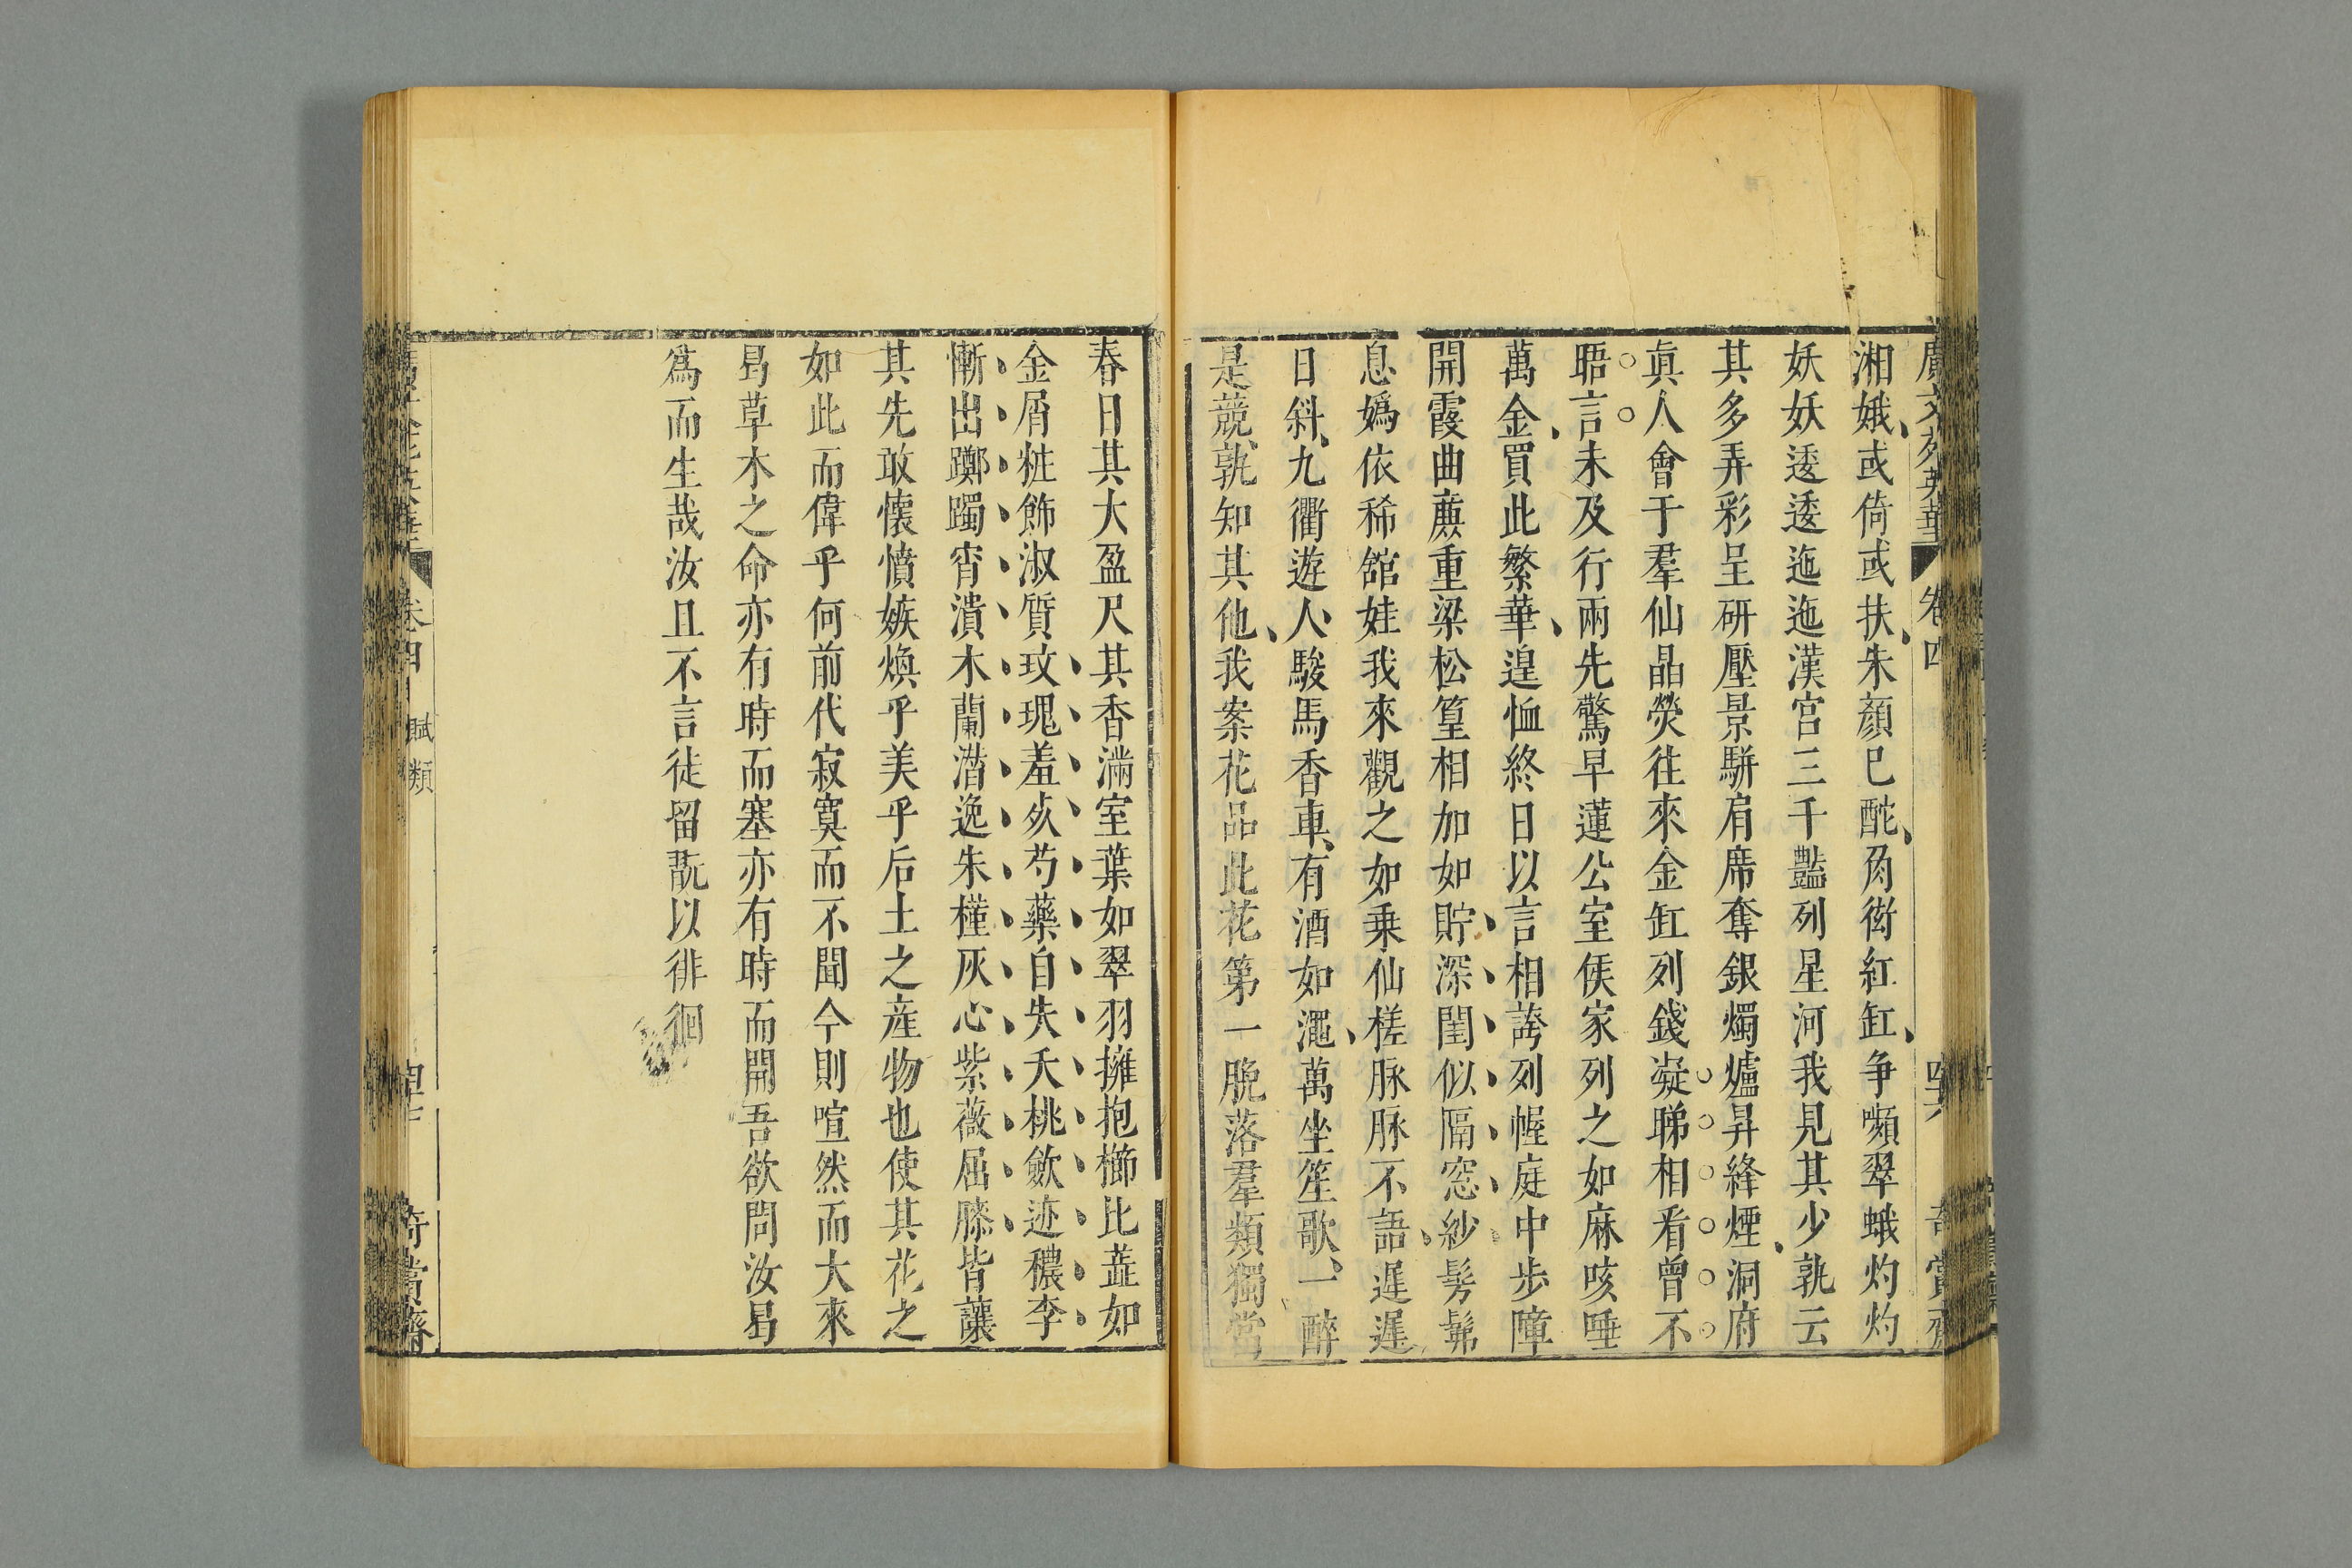 廣文苑英華 卷四 四十六 奇賞齋
湘娥或倚或扶朱顏已酡角衒紅缸争嚬翠蛾灼灼
妖妖逶逶迤迤漢宮三千豔列星河我見其少孰云
其多弄彩呈研壓景駢肩席奪銀燭爐昇絳煙洞府
眞人會于羣仙晶熒往來金缸列錢凝睇相看曾不
晤言未及行兩先驚早蓮公室侯家列之如麻咳唾
萬金買此繁華遑恤終日以言相誇列幄庭中步障
開霞曲廡重梁松篁相加如貯深閨似隔窓紗髣髴
息嬀依稀舘娃我來觀之如乗仙槎脉脉不語遲遲
日斜九衢遊人駿馬香車有酒如澠萬坐笙歌一醉
是競孰知其他我案花品此花第一脫落羣類獨當
春日其大盈尺其香滿室葉如翠羽擁抱櫛比蕋如
金屑粧飾淑質玫瑰羞㱙芍藥自失夭桃斂迹穠李
慚出躑躅宵潰木蘭潛逸朱槿灰心紫薇屈膝皆讓
其先敢懷憤嫉煥乎美乎后土之産物也使其花之
如此而偉乎何前代寂寞而不聞今則喧然而大來
曷草木之命亦有時而塞亦有時而開吾欲問汝曷
爲而生哉汝且不言徒留翫以徘徊
卷四 賦類 奇賞齋